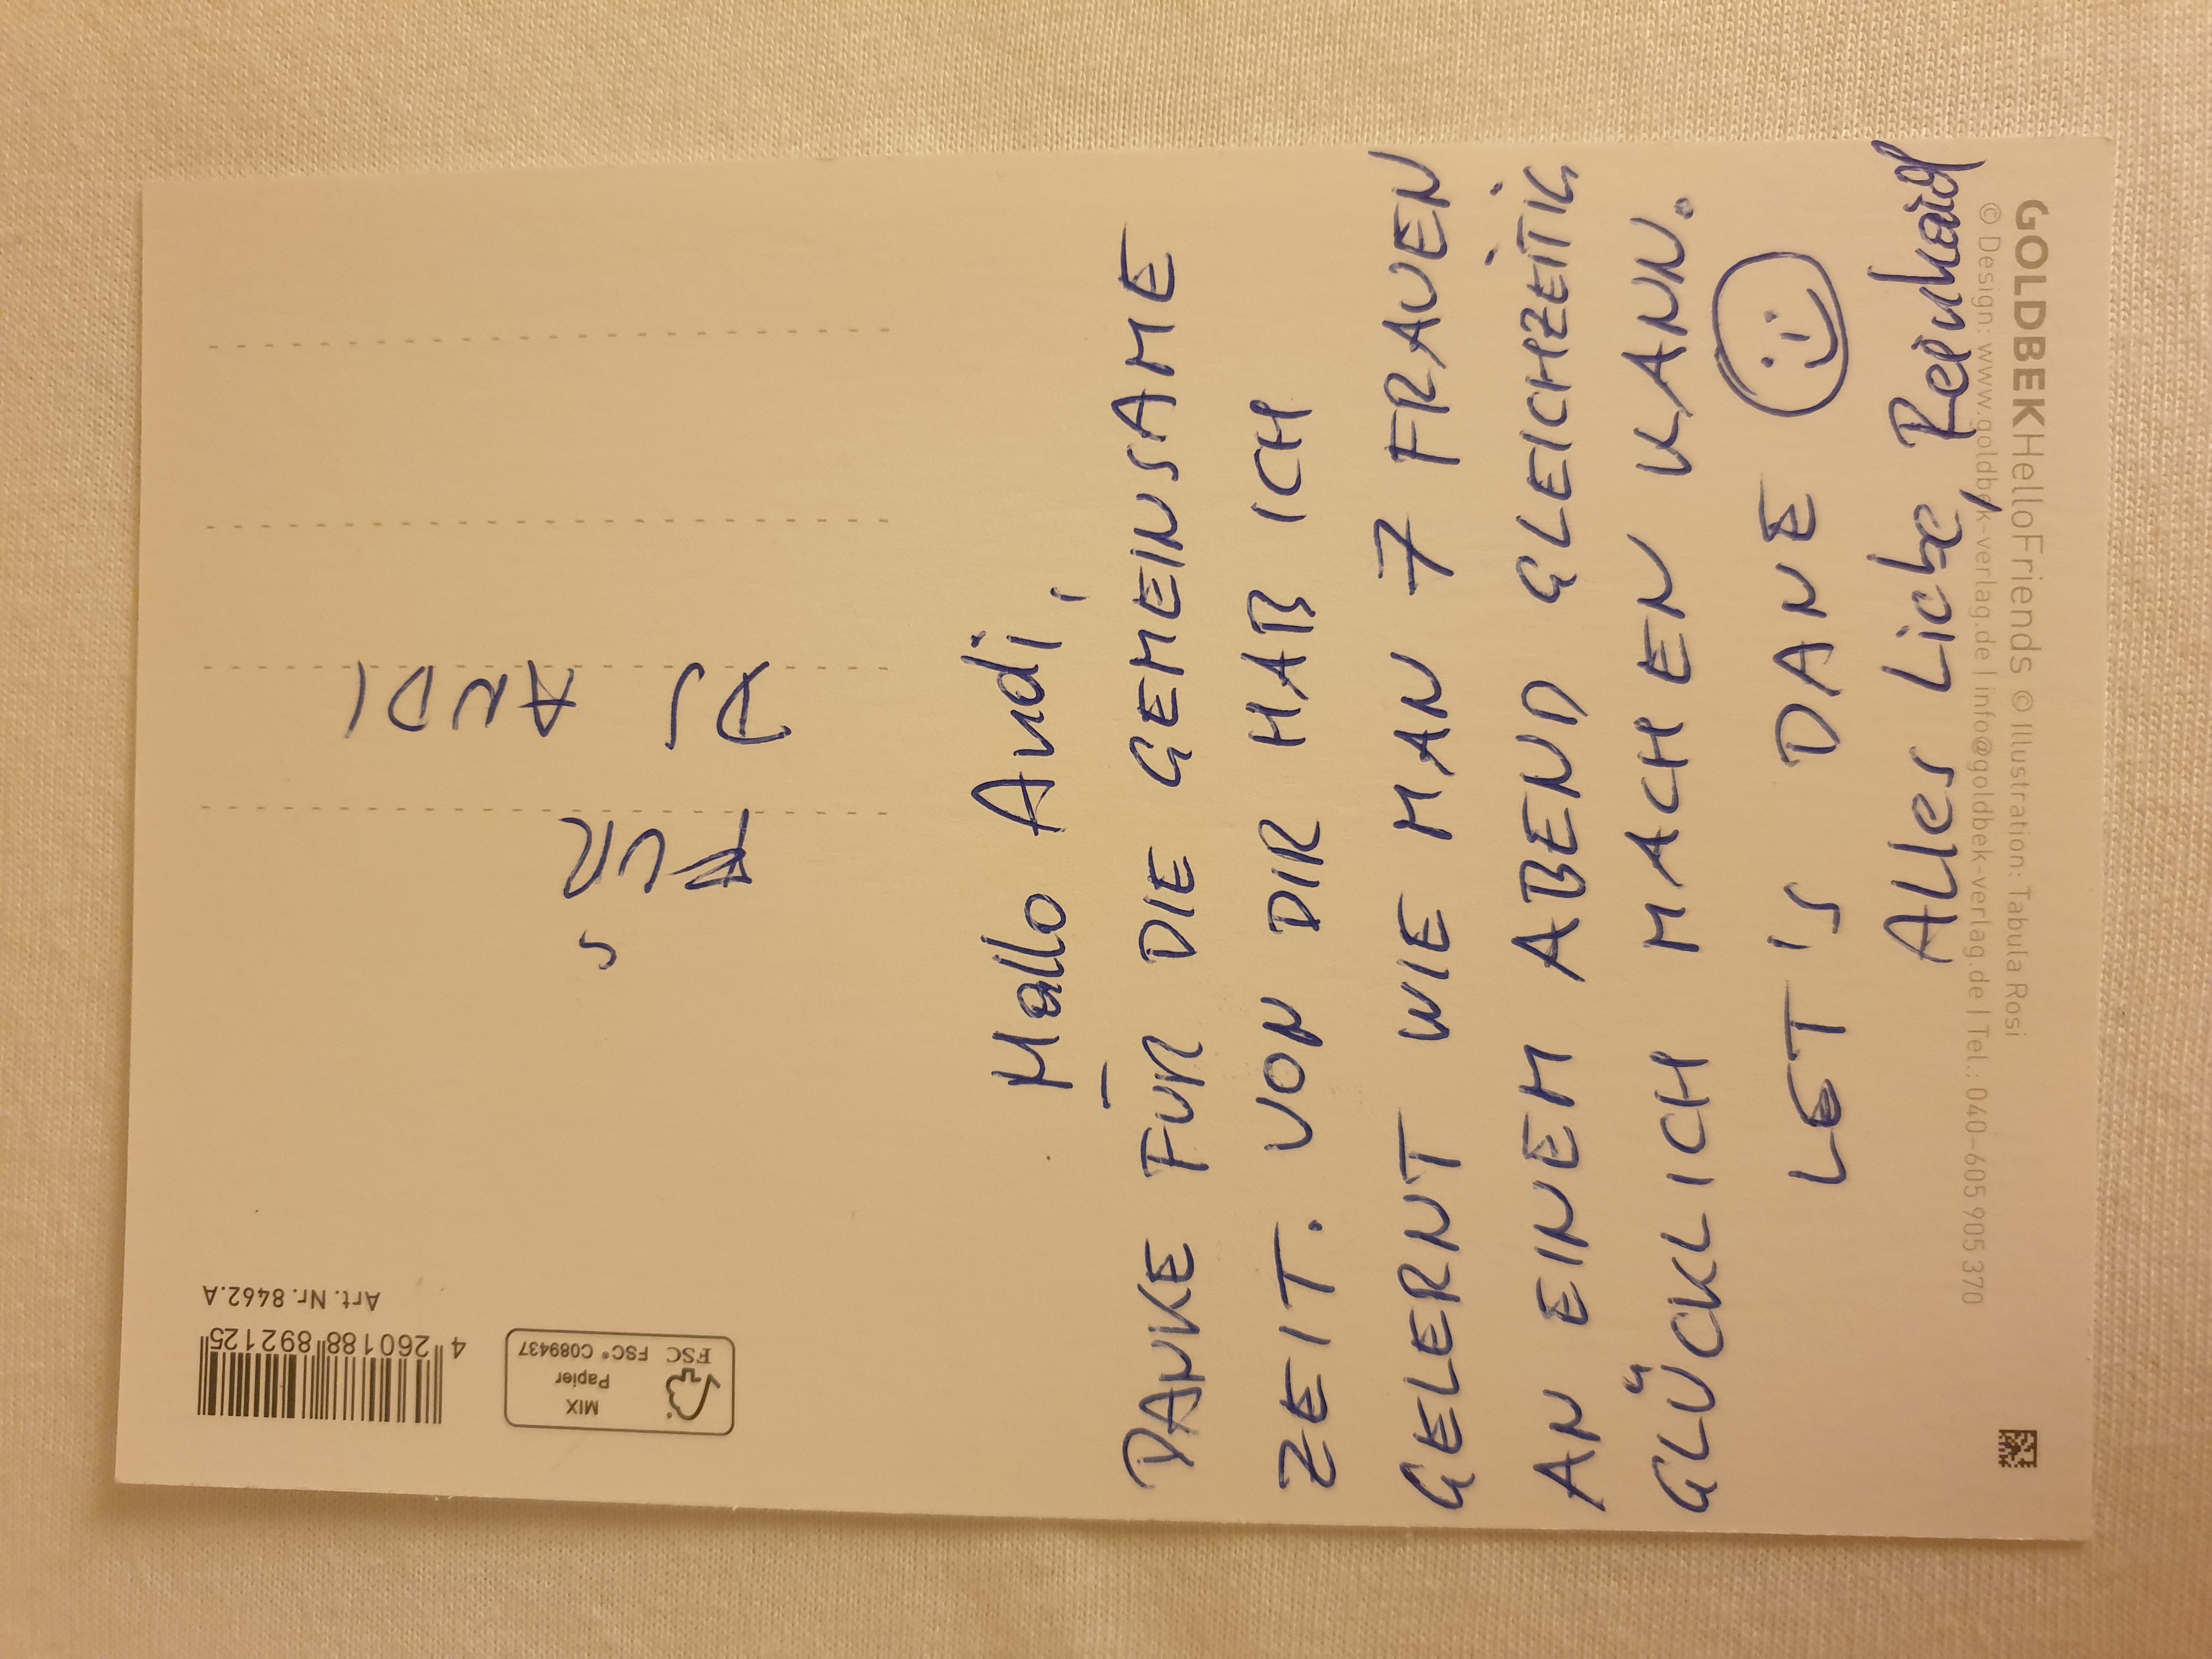 Hallo Andi,
DANKE FÜR DIE GEMEINSAME
ZEIT. VON DIR HAB ICH
GELERNT WIE MAN 7 FRAUEN
AN EINEM ABEND GLEICHZEITIG
GLÜCKLICH MACHEN KANN.
LET'S DANE
Alles Liebe, Reinhard
GOLDBEKHelloFriends © Illustration: Tabula Rosi
© Design: www.goldbek-verlag.de | info@goldbek-verlag.de | Tel.: 040-605905370
Art. Nr. 8462.A
4 260188 892125
MIX
Papier
FSC
FSC® C089437